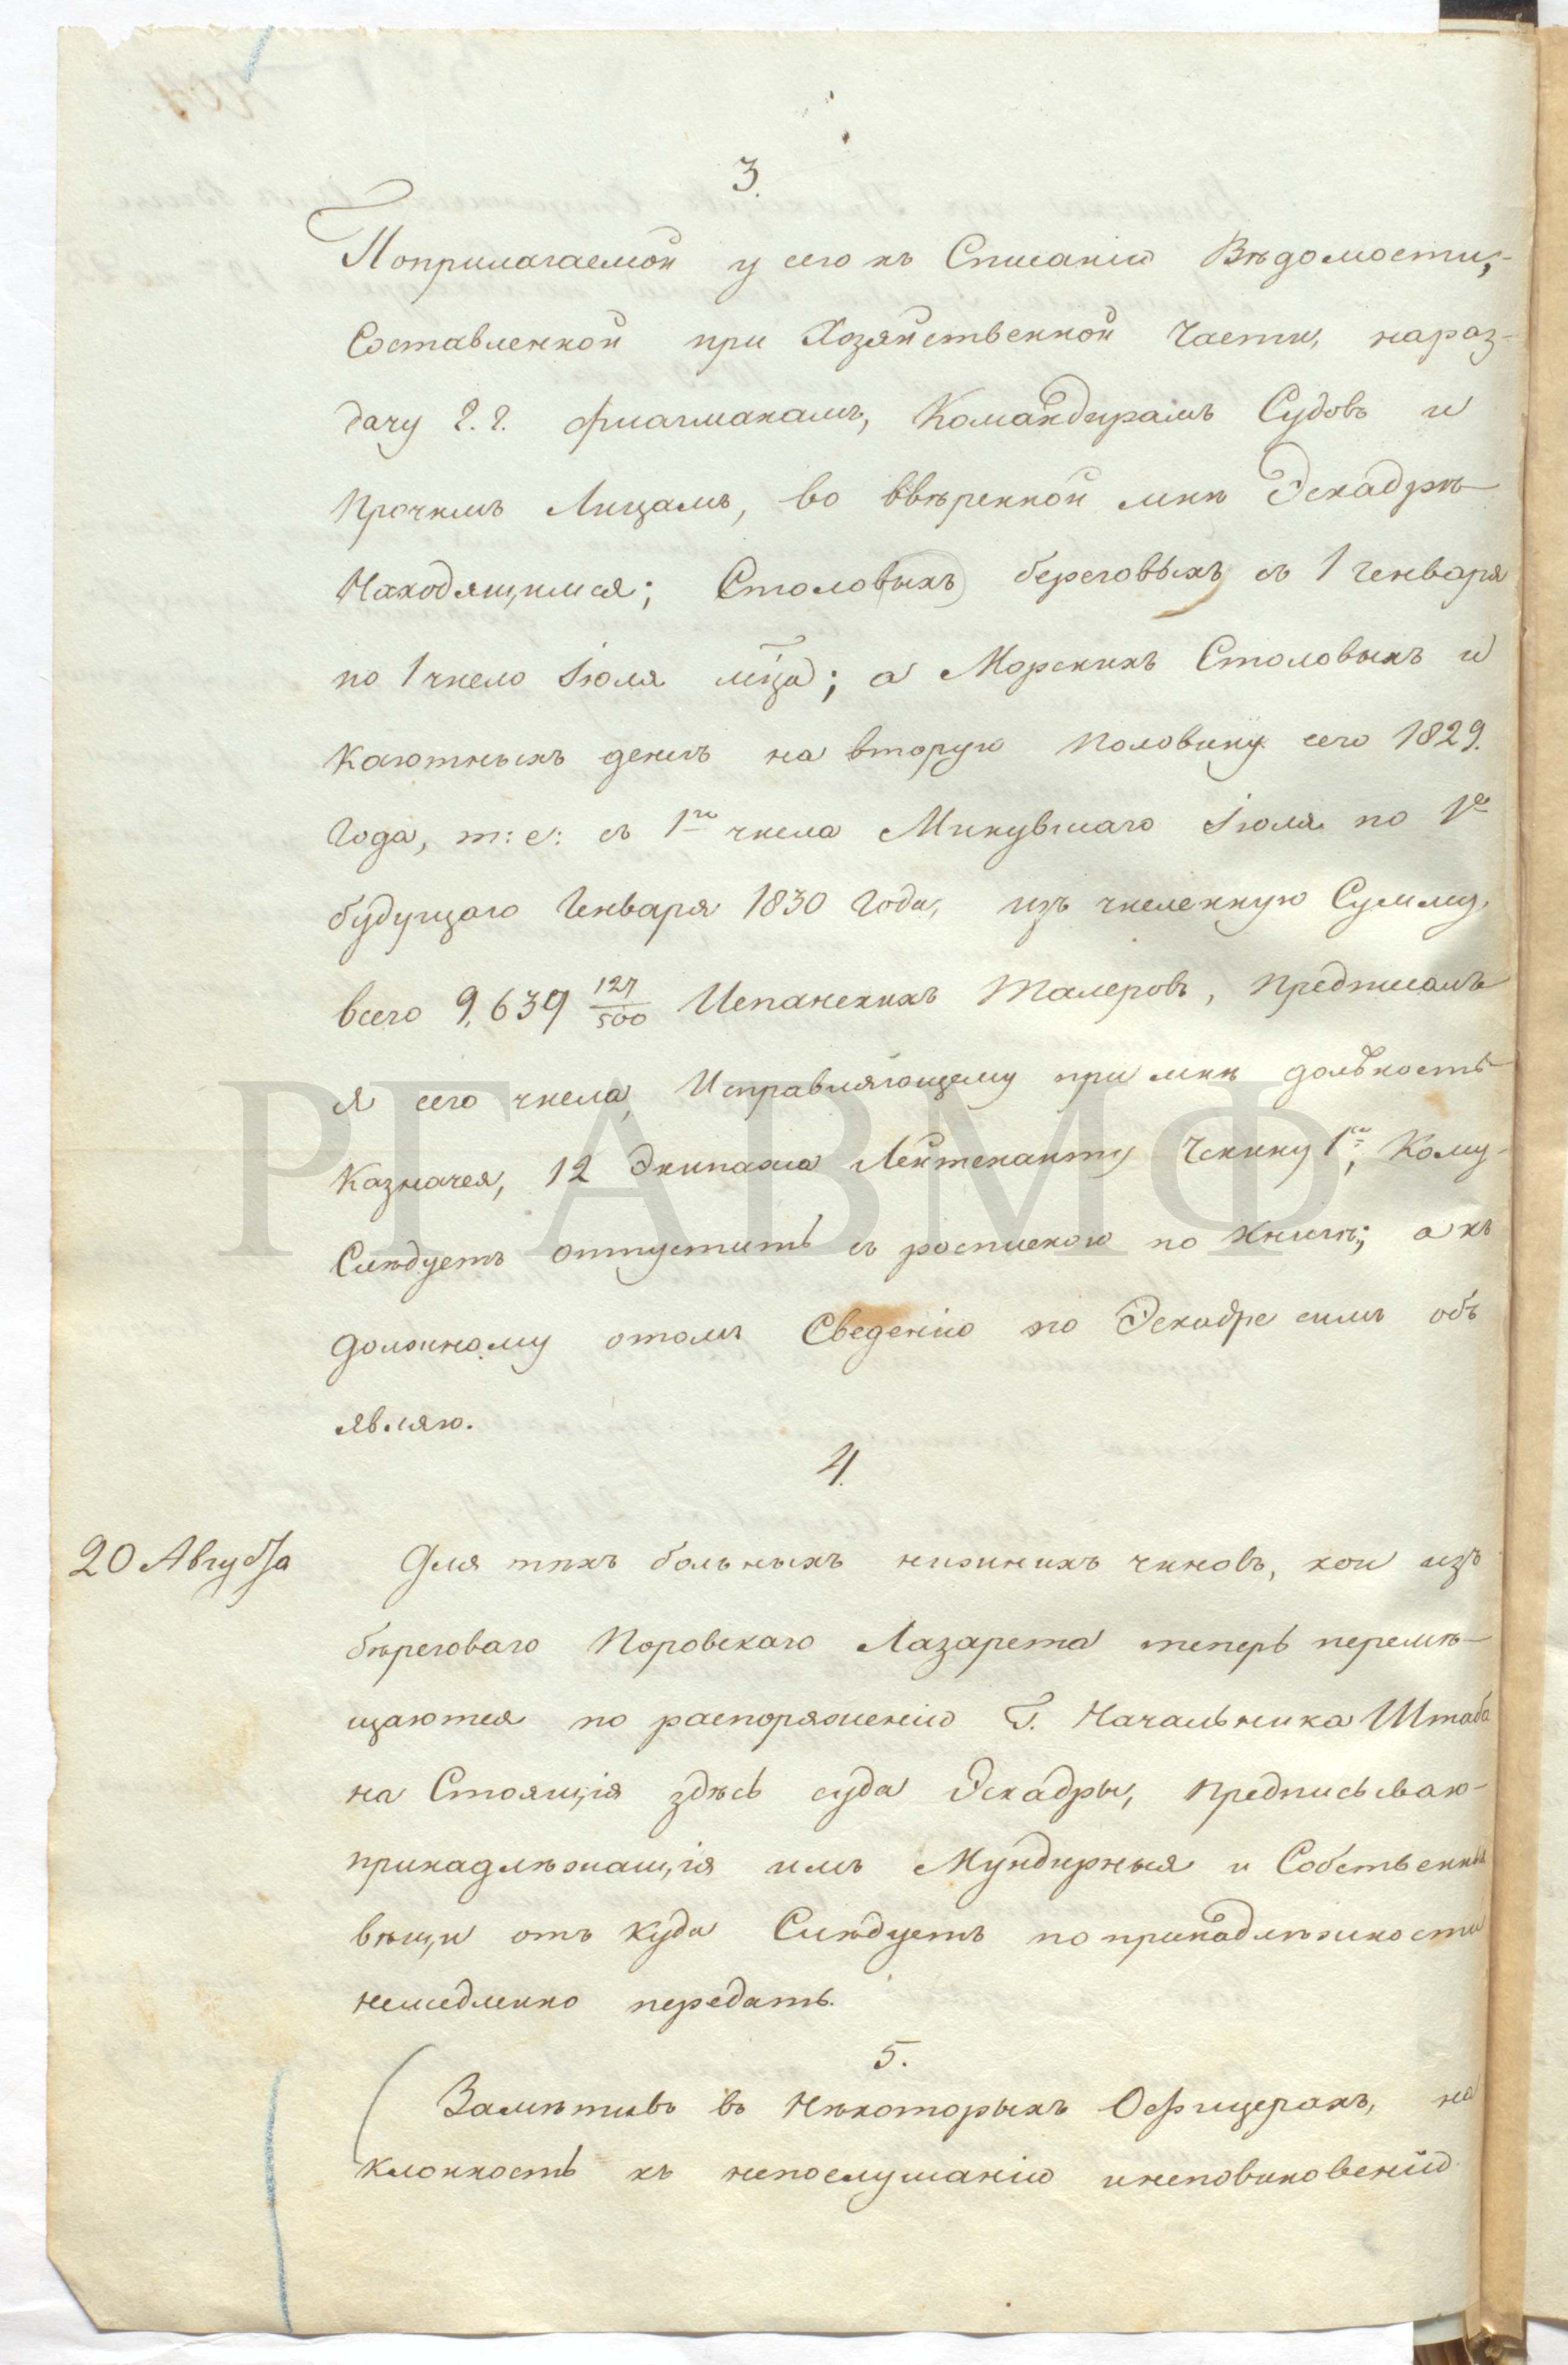 3.
По прилагаемой у сего къ Списанію Вѣдомости,
Составленной при Хозяйственной Части, на раз-
дачу Г. Г. Флагманамъ, Командирамъ Судовъ и
Прочимъ Лицамъ, во ввѣренной мнѣ Эскадрѣ
Находящимся; Столовыхъ береговыхъ съ 1 Генваря
по 1 число Іюля мца; а Морскихъ Столовыхъ и
Каютныхъ денегъ на вторую половину сего 1829.
Года, т: е: съ 1го числа Минувшаго Іюля по 1е
будущаго Генваря 1830 Года, изъ численную Сумму
всего 9,639 127/500 Испанскихъ Талеровъ, предписалъ
я сего числа, Исправляющему при мнѣ должность
Казначея, 12 Экипажа Лейтенанту 1му, Кому
Слѣдуетъ отпустить съ роспискою по Книгѣ; а къ
должному о томъ Сведенію по Эскадре симъ объ
являю.
4.
20 Августа
Для тѣхъ больныхъ нижнихъ чиновъ, кои изъ
бѣреговаго Поровскаго Лазарета теперь перемѣ-
щаются по распоряженію Г. Начальника Штаба
на Стоящія здѣсь суда Эскадры, предписываю
принадлѣжащія имъ Мундирныя и Собственныя
вѣщи отъ куда Слѣдуетъ по принадлѣжности
немедленно передать.
5.
Замѣтивъ въ Нѣкоторыхъ Офицерахъ, на
клонность къ непослушанію и неповиновенію
РГАВМФ